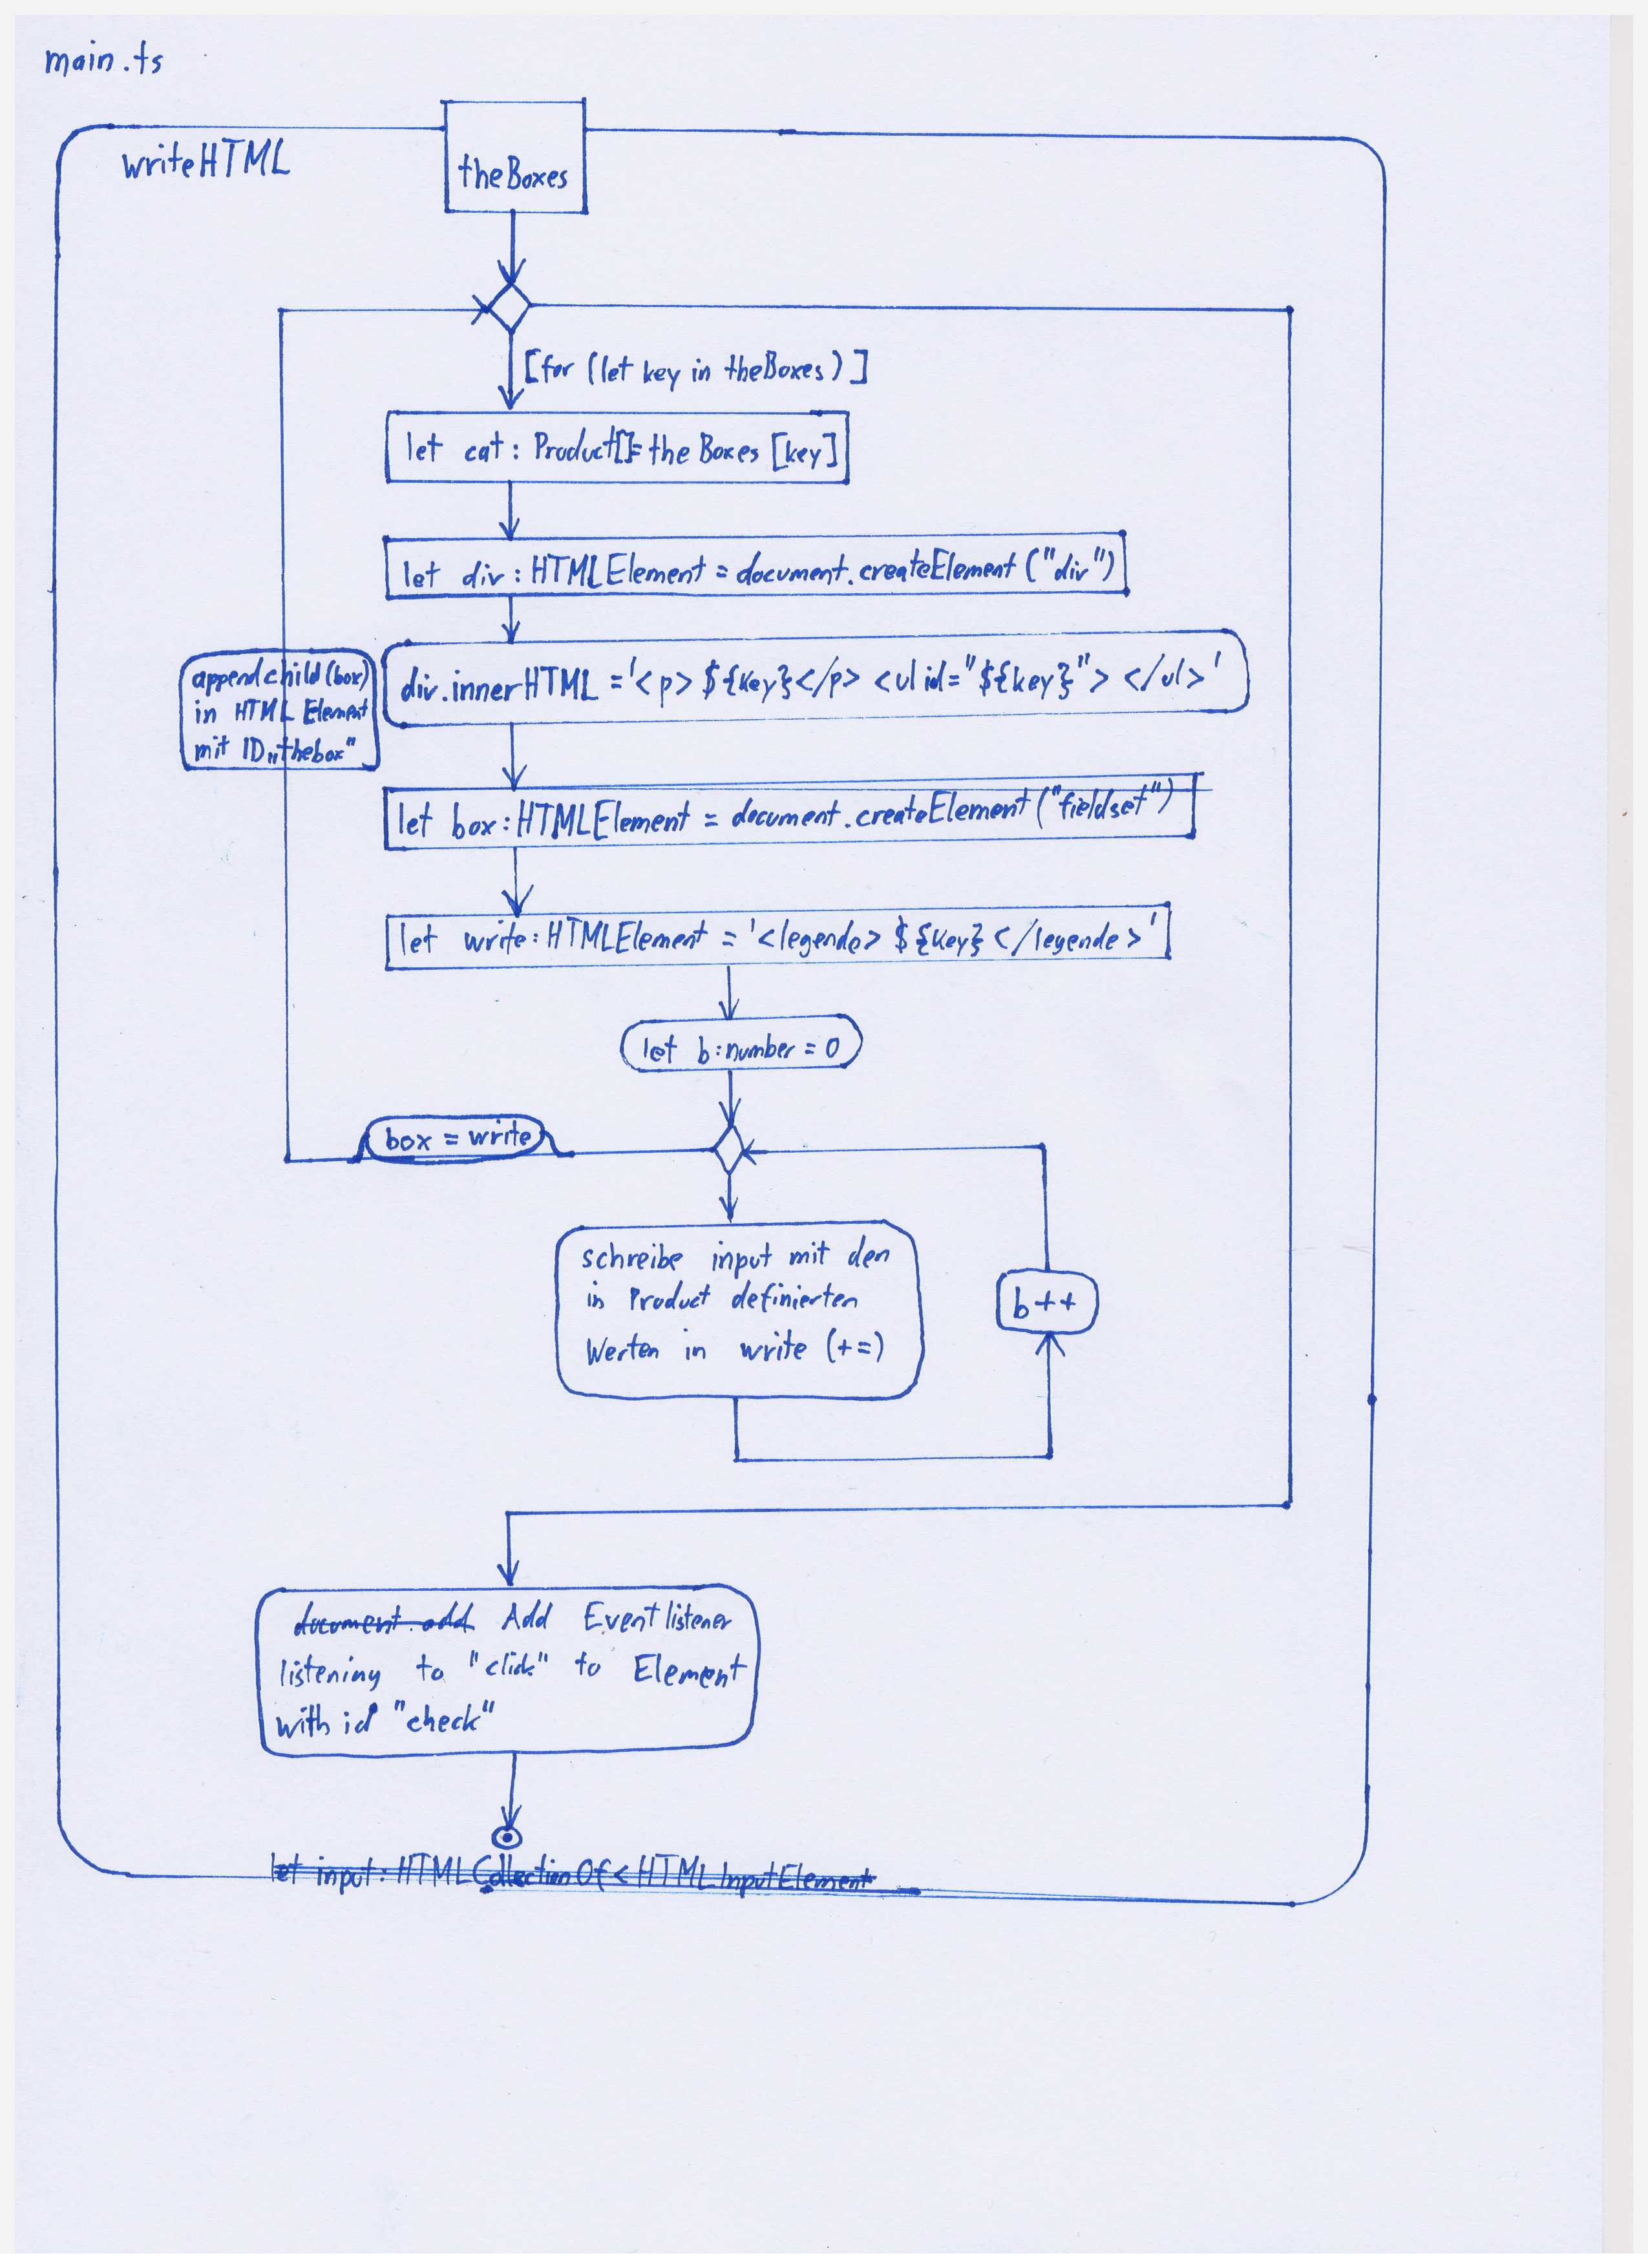 main.ts
writeHTML
theBoxes
[for (let key in theBoxes)]
let cat: Product[]= theBoxes [key]
let div: HTMLElement = document.createElement ("div")
appendchild(box)
in HTML Element
mit ID„thebox"
div.innerHTML ='<p> ${key}</p> <ul id="${key}"> </ul>'
let box: HTMLElement = document.createElement ("fieldset")
let write: HTMLElement = '<legende> ${key} </legende>'
let b:number = 0
box = write
schreibe input mit den
in Product definierten
Werten in write (+=)
b++
document.add Add Eventlistener
listening to "click" to Element
with id "check"
let input: HTMLCollectionOf< HTMLInputElement